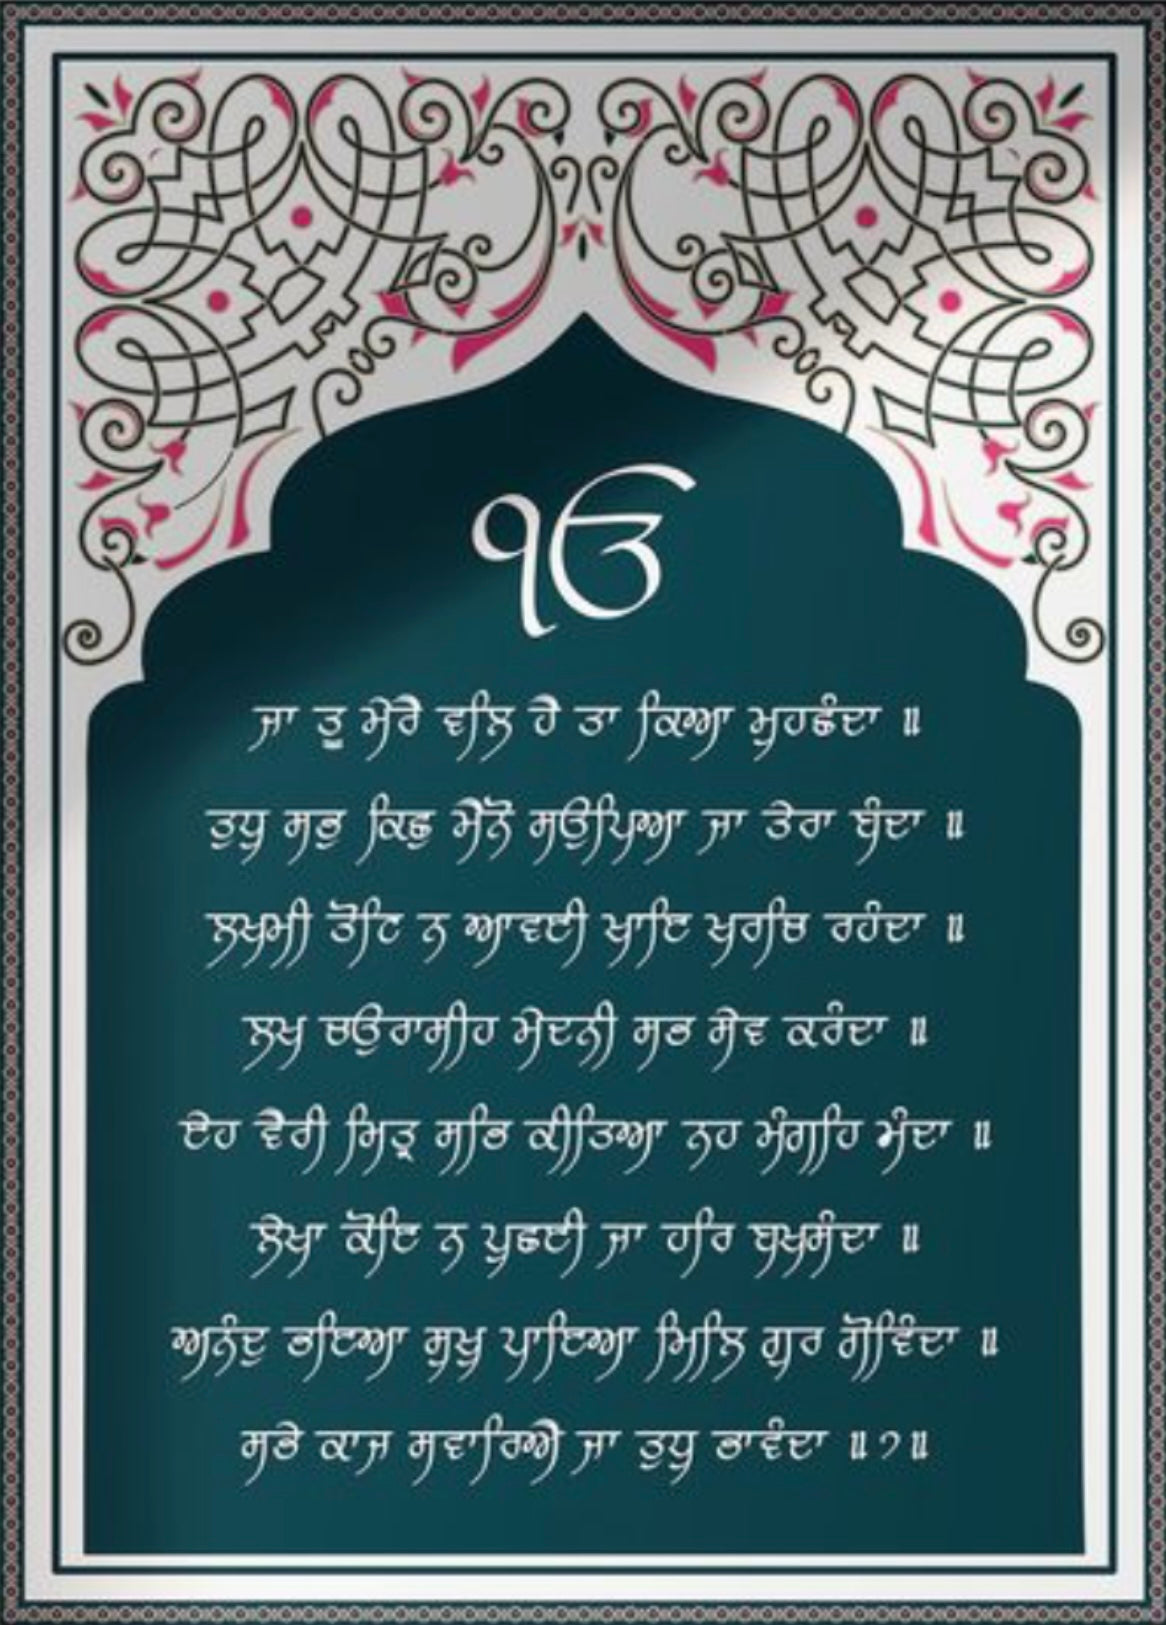 ੴ
ਜਾ ਤੂ ਮੇਰੈ ਵਲਿ ਹੈ ਤਾ ਕਿਆ ਮੁਹਛੰਦਾ ॥
ਤੁਧੁ ਸਭੁ ਕਿਛੁ ਮੈਨੋ ਸਉਪਿਆ ਜਾ ਤੇਰਾ ਬੰਦਾ ॥
ਲਖਮੀ ਤੋਟਿ ਨ ਆਵਈ ਖਾਇ ਖਰਚਿ ਰਹੰਦਾ ॥
ਲਖ ਚਉਰਾਸੀਹ ਮੇਦਨੀ ਸਭ ਸੇਵ ਕਰੰਦਾ ॥
ਏਹ ਵੈਰੀ ਮਿਤ੍ਰ ਸਭਿ ਕੀਤਿਆ ਨਹ ਮੰਗਹਿ ਮੰਦਾ ॥
ਲੇਖਾ ਕੋਇ ਨ ਪੁਛਈ ਜਾ ਹਰਿ ਬਖਸੰਦਾ ॥
ਅਨੰਦੁ ਭਇਆ ਸੁਖੁ ਪਾਇਆ ਮਿਲਿ ਗੁਰ ਗੋਵਿੰਦਾ ॥
ਸਭੇ ਕਾਜ ਸਵਾਰਿਐ ਜਾ ਤੁਧੁ ਭਾਵੰਦਾ ॥੭॥